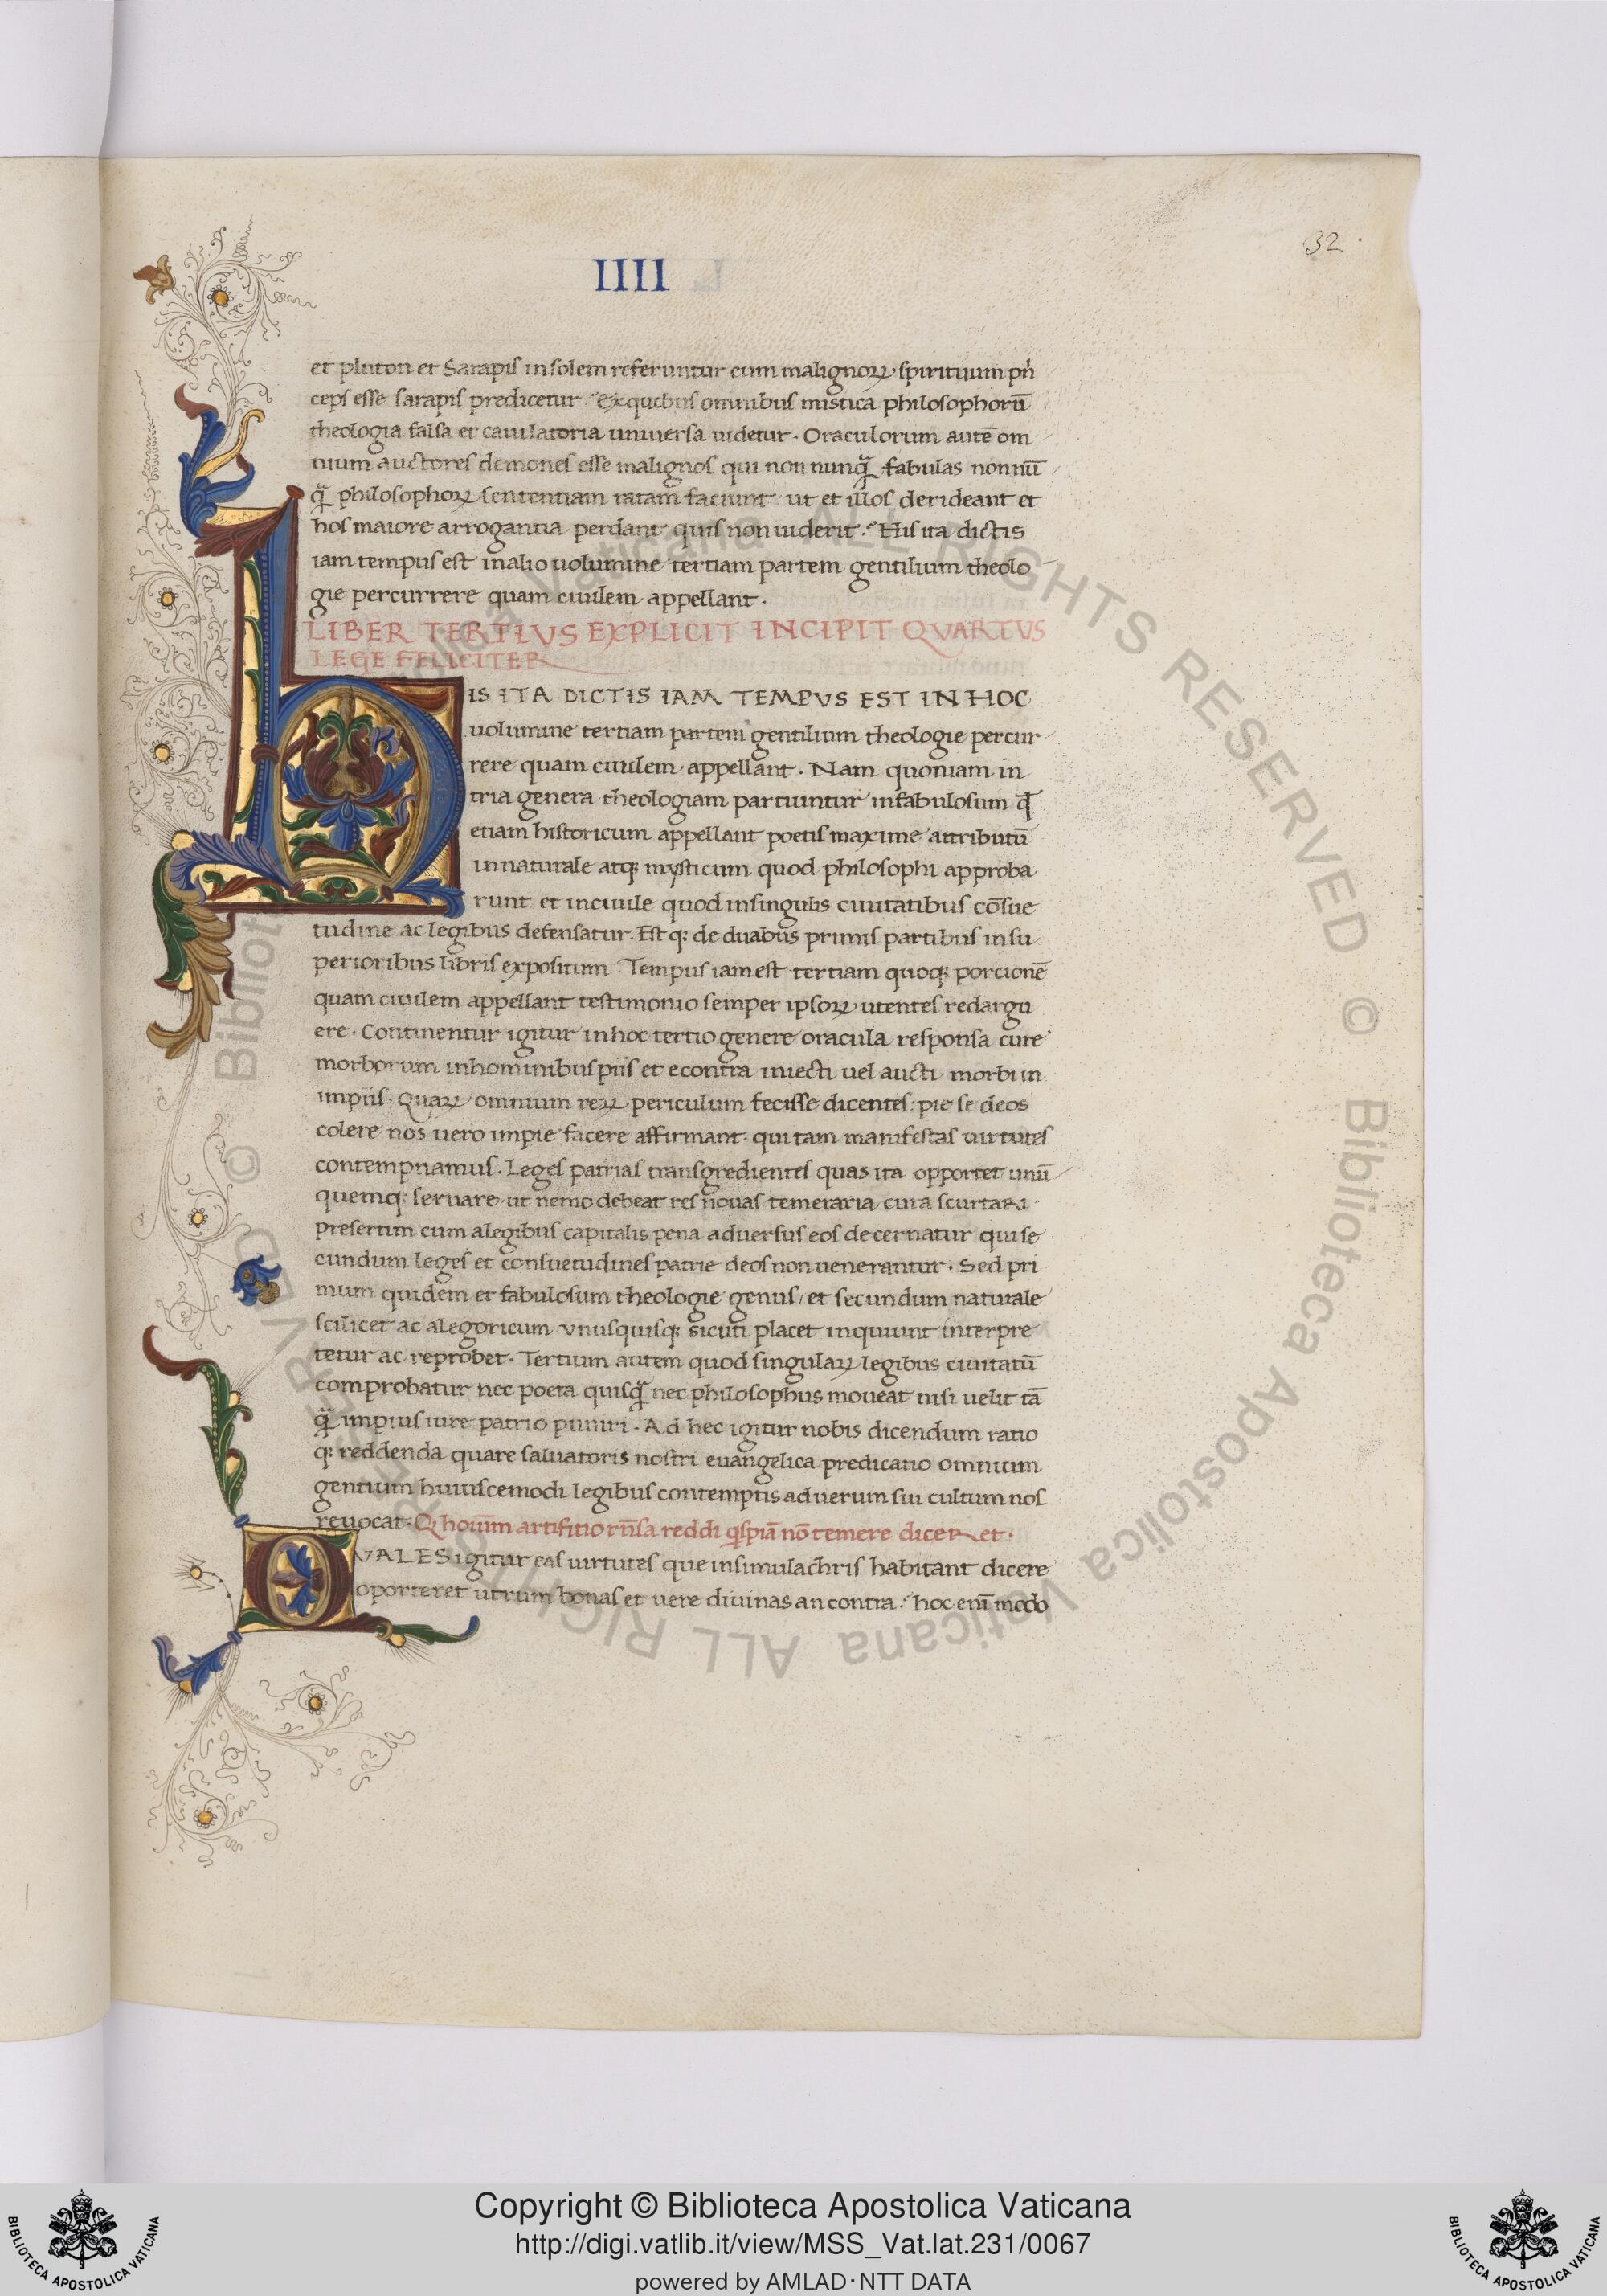 32
IIII
et pluton et Sarapis in solem referuntur cum malignoꝝ spirituum pn̍
ceps esse sarapis predicetur. Ex quibus omnibus mistica philosophorū
theologia falsa et cauilatoria uniuersa uidetur. Oraculorum autē om
nium auctores demones esse malignos qui non nunq̄ fabulas nonnū
q̄ philosophoꝝ sententiam ratam faciunt ut et illos derideant et
hos maiore arrogantia perdant quis non uiderit. His ita dictis
iam tempus est in alio uolumine tertiam partem gentilium theolo
gie percurrere quam ciuilem appellant.
LIBER TERTIVS EXPLICIT INCIPIT QVARTVS
LEGE FELICITER
hIS ITA DICTIS IAM TEMPVS EST IN HOC
uolumine tertiam partem gentilium theologie percur
rere quam ciuilem appellant. Nam quoniam in
tria genera theologiam partiuntur in fabulosum qđ
etiam historicum appellant poetis maxime attributū
in naturale atq; mysticum quod philosophi approba
runt et in ciuile quod in singulis ciuitatibus cōsue
tudine ac legibus defensatur. Est q; de duabus primis partibus in su
perioribus libris expositum. Tempus iam est tertiam quoq; porcionē
quam ciuilem appellant testimonio semper ipsoꝝ utentes redargu
ere. Continentur igitur in hoc tertio genere oracula responsa cure
morborum in hominibus piis et econtra iniecti uel aucti morbi in
impiis. Quaꝝ omnium reꝝ periculum fecisse dicentes: pie se deos
colere nos uero impie facere affirmant. qui tam manifestas uirtutes
contempnamus. Leges patrias transgredientes quas ita opportet unū
quemq; seruare ut nemo debeat res nouas temeraria cura scurtari
presertim cum a legibus capitalis pena aduersus eos decernatur qui se
cundum leges et consuetudines patrie deos non uenerantur. Sed pri
mum quidem et fabulosum theologie genus, et secundum naturale
scilicet ac alegoricum vnusquisq; sicuti placet inquiunt interpre
tetur ac reprobet. Tertium autem quod singulaꝝ legibus ciuitatū
comprobatur nec poeta quisq̄ nec philosophus moueat nisi uelit tā
q̄ impius iure patrio puniri. Ad hec igitur nobis dicendum ratio
q; reddenda quare saluatoris nostri euangelica predicatio omnium
gentium huiuscemodi legibus contemptis ad uerum sui cultum nos
reuocat. Q hoīum artifitio rn̄sa reddi qspiā nō temere diceret.
QVALES igitur eas uirtutes que in simulachris habitant dicere
oporteret utrum bonas et uere diuinas an contra. hoc enī modo
© Biblioteca Apostolica Vaticana ALL RIGHTS RESERVED © Biblioteca Apostolica Vaticana ALL RIGHTS RESERVED
Copyright © Biblioteca Apostolica Vaticana
http://digi.vatlib.it/view/MSS_Vat.lat.231/0067
powered by AMLAD·NTT DATA
BIBLIOTECA APOSTOLICA VATICANA
BIBLIOTECA APOSTOLICA VATICANA